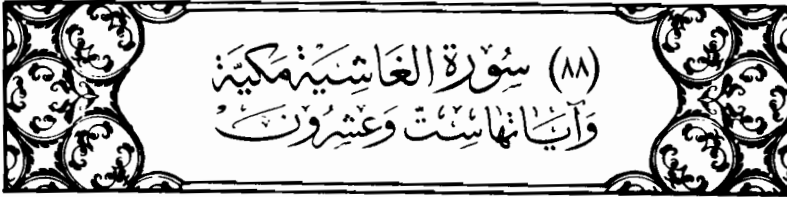 (٨٨) سُوْرَةُ الْغَاشِيَةِ مَكِيَّة
وَآيَاتُهَا سِتٌّ وَعِشْرُونَ